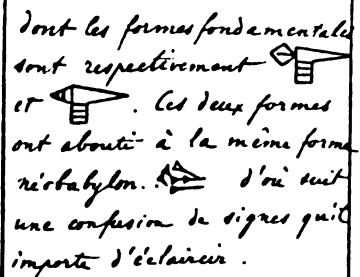 dont les formes fondamentales
sont respectivement
et . Ces deux formes
ont abouti à la même forme
néobabylon. . d'où suit
une confusion de signes qu'il
importe d'éclaircir.